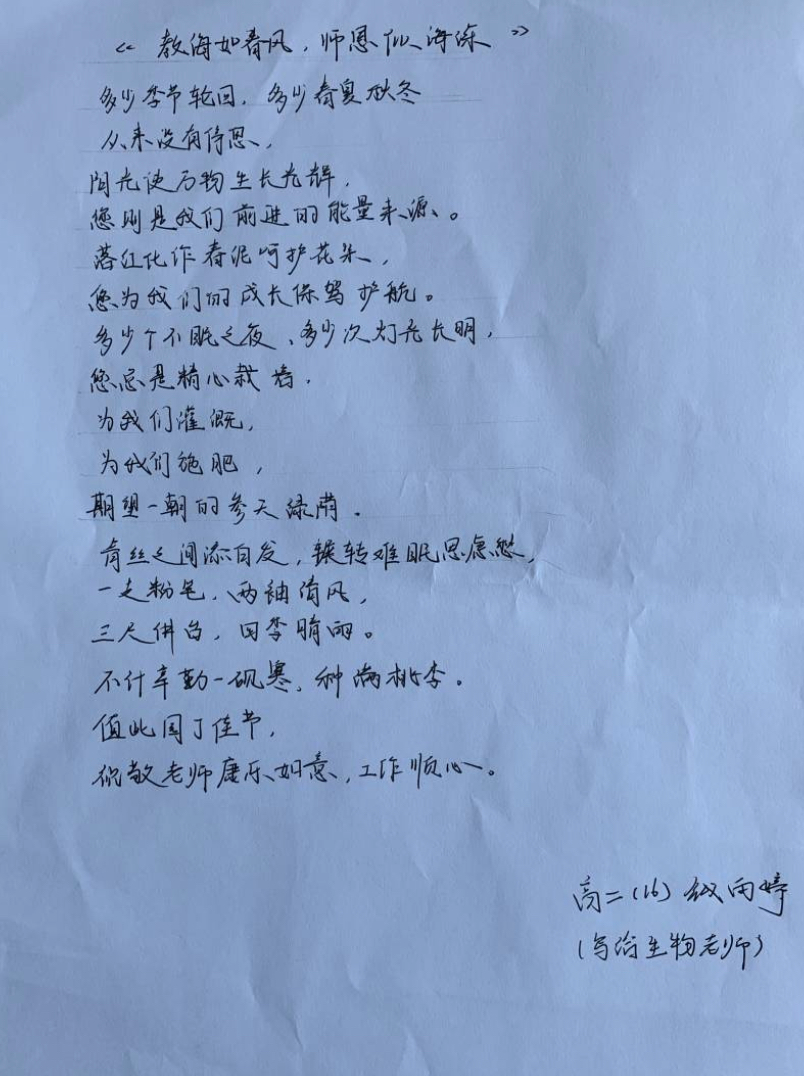 《教诲如春风，师恩似海深》
多少季节轮回，多少春夏秋冬
从来没有停思，
阳光使万物生长光辉，
您则是我们前进的能量来源。
落红化作春泥呵护花朵，
您为我们的成长保驾护航。
多少个不眠之夜、多少次灯光长明，
您总是精心栽培，
为我们灌溉，
为我们施肥，
期望一朝的参天绿荫。
青丝之间添白发，辗转难眠思虑愁，
一支粉笔，两袖清风，
三尺讲台，四季晴雨。
不计辛勤一砚寒，种满桃李。
值此园丁佳节，
祝敬老师康乐如意，工作顺心。
高二（16）雨婷
（写给生物老师）